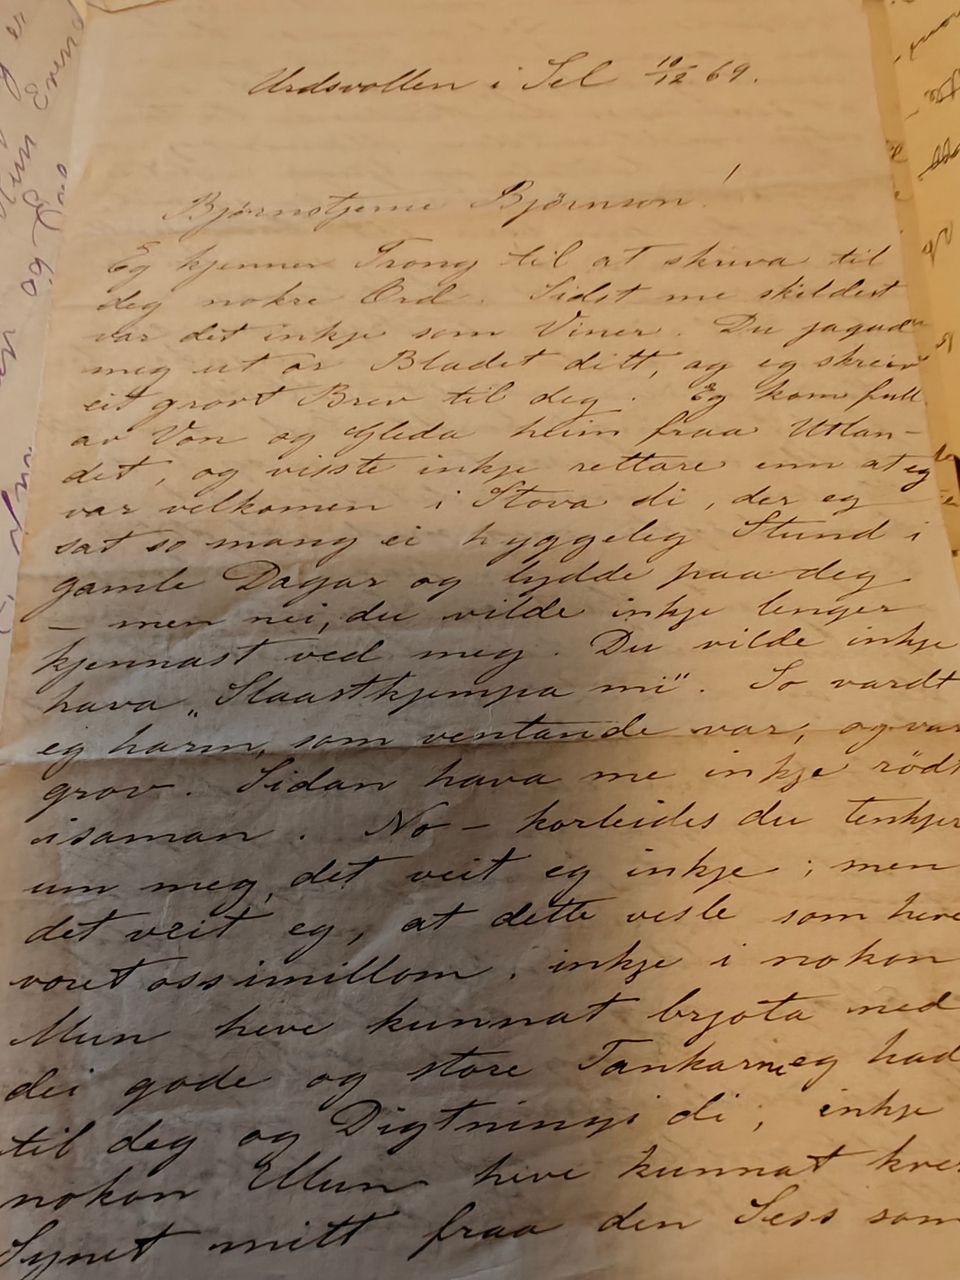 Urdsvollen i Sel 10/12 69.
Bjørnstjerne Bjørnson!
Eg kjenner Trong til at skriva til
deg nokre Ord. Sidst me skildest
var det inkje som Viner. Du jagad
meg ut or Bladet ditt, og eg skreiv
eit grovt Brev til deg. Eg kom full
av Von og Gleda heim fraa Utlan-
det, og visste inkje rettare enn at eg
var velkomen i Stova di, der eg
sat so mang ei hyggeleg Stund i
gamle Dagar og lydde paa deg
– men nei, du vilde inkje lenger
kjennast ved meg. Du vilde inkje
hava „Slaastkjempa mi". So vardt
eg harm, som ventande var, og var
grov. Sidan hava me inkje rödt
isaman. No – korleides du tenkjer
um meg, det veit eg inkje; men
det veit eg, at dette vesle som heve
voret ossimillom, inkje i nokon
Mun heve kunnat brjota ned
dei gode og store Tankarne eg had
til deg og Digtningi di; inkje
nokon Mun heve kunnat kve
Synet mitt fraa den Sess som